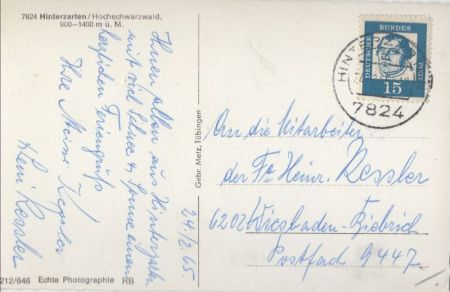 7824 Hinterzarten/Hochschwarzwald,
900–1400 m ü. M.
Ihnen Allen aus Hinterzarten
mit viel Schnee & Sonne einen
herzlichen Feriengruß
Ihre
Heini Kessler
24/2.65
Gebr. Metz, Tübingen
212/646 Echte Photographie RB
DEUTSCHE
BUNDES
POST
15
HINTERZ
7824
An die Mitarbeiter
der Fa Heinr. Kessler
6202 Wiesbaden-Biebrich
Postfach 9447